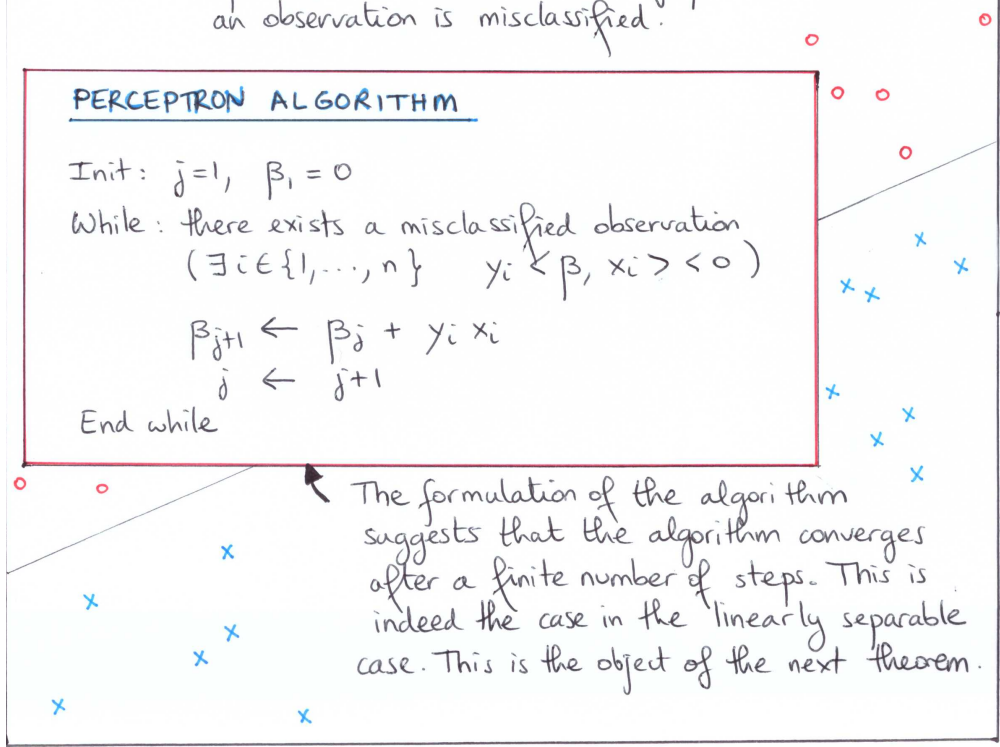 an observation is misclassified.
PERCEPTRON ALGORITHM
Init: j=1, β₁ = 0
While: there exists a misclassified observation
(∃ i ∈ {1, ..., n} yi < β, xi > < 0)
βj+1 ← βj + yi xi
j ← j+1
End while
The formulation of the algorithm
suggests that the algorithm converges
after a finite number of steps. This is
indeed the case in the linearly separable
case. This is the object of the next theorem.